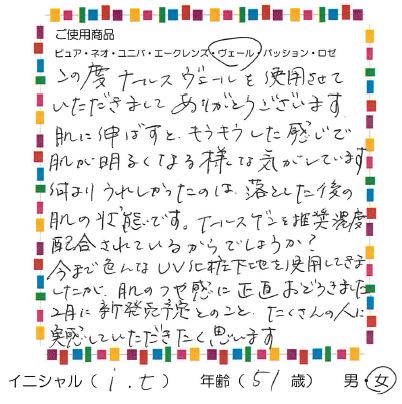 ご使用商品
ピュア・ネオ・ユニバ・エークレンズ・ヴェール・パッション・ロゼ
この度 ナールスヴェールを使用させて
いただきまして ありがとうございます
肌に伸ばすと、もうもうした感じで
肌が明るくなる様な気がしています
何よりうれしかったのは、落とした後の
肌の状態です。ナールスゲンを推奨濃度
配合されているからでしょうか?
今まで色んなUV化粧下地を使用してきま
したが、肌のつや感に正直おどろきました
2月に新発売予定とのこと、たくさんの人に
実感していただきたく思います
イニシャル(i.t) 年齢(51歳) 男・女